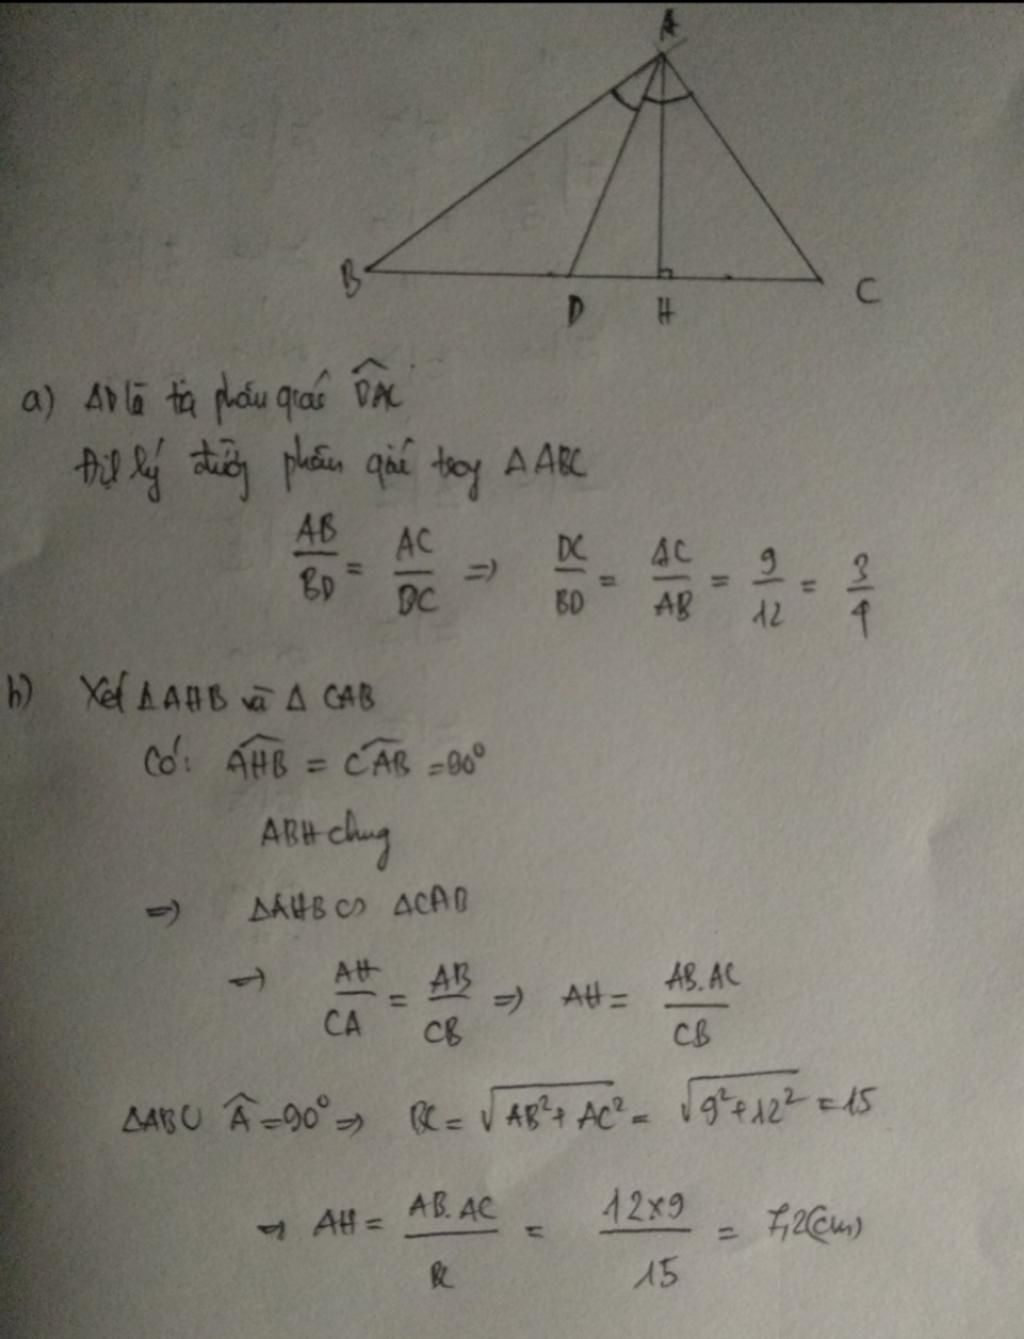 A
B
D
H
C
a) AD là tia phân giác DAC
Định lý đường phân giác trong Δ ABC
AB/BD = AC/DC => DC/BD = AC/AB = 9/12 = 3/4
b) Xét Δ AHB và Δ CAB
Có: AHB = CAB = 90°
ABH chung
=> ΔAHB ∽ ΔCAB
=> AH/CA = AB/CB => AH = AB.AC/CB
ΔABC Â = 90° => BC = √AB²+AC² = √9²+12² = 15
=> AH = AB.AC/BC = 12×9/15 = 7,2(cm)